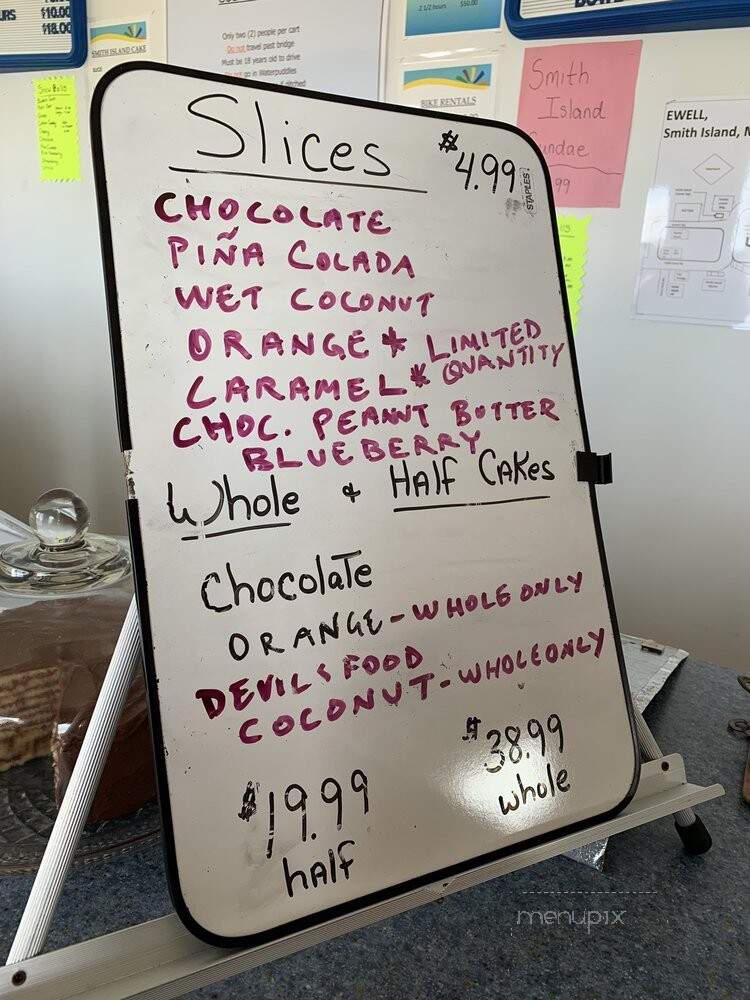 URS
$10.00
$18.00
SMITH ISLAND CAKE
Only two (2) people per cart
Do not travel past bridge
Must be 18 years old to drive
go in Waterpuddles
2 1/2 hours $50.00
BIKE RENTALS
Smith
Island
Sundae
99
EWELL,
Smith Island, M
Slices $4.99
STAPLES
CHOCOLATE
PIÑA COLADA
WET COCONUT
ORANGE * LIMITED
CARAMEL * QUANTITY
CHOC. PEANUT BUTTER
BLUEBERRY
Whole & Half Cakes
Chocolate
ORANGE - WHOLE ONLY
DEVILS FOOD
COCONUT - WHOLE ONLY
$19.99
half
$38.99
whole
menupix